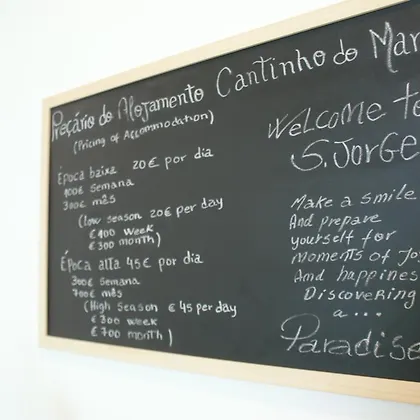 Preçário do Alojamento Cantinho do Mar
(Pricing of Accommodation)
Época baixa 20€ por dia
100€ semana
300€ mês
(low season 20€ per day
€100 week
€300 month)
Época alta 45€ por dia
300€ semana
700€ mês
(High Season €45 per day
€300 week
€700 month)
Welcome to
S. Jorge
Make a smile
And prepare
yourself for
moments of Jo
And happines
Discovering
a...
Paradise